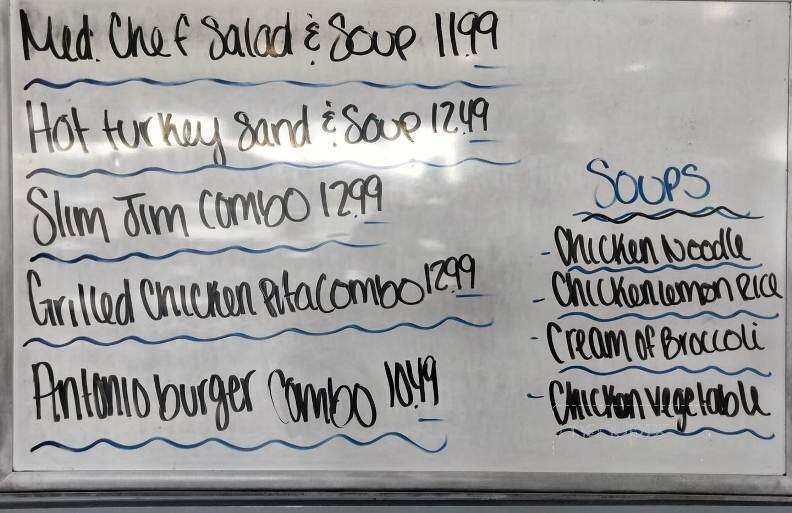 Med. Chef Salad & Soup 11.99
Hot turkey Sand & Soup 12.49
Slim Jim Combo 12.99
Grilled Chicken Pita Combo 12.99
Antonio burger Combo 10.49
Soups
- Chicken Noodle
- Chicken lemon Rice
- Cream of Broccoli
- Chicken vegetable